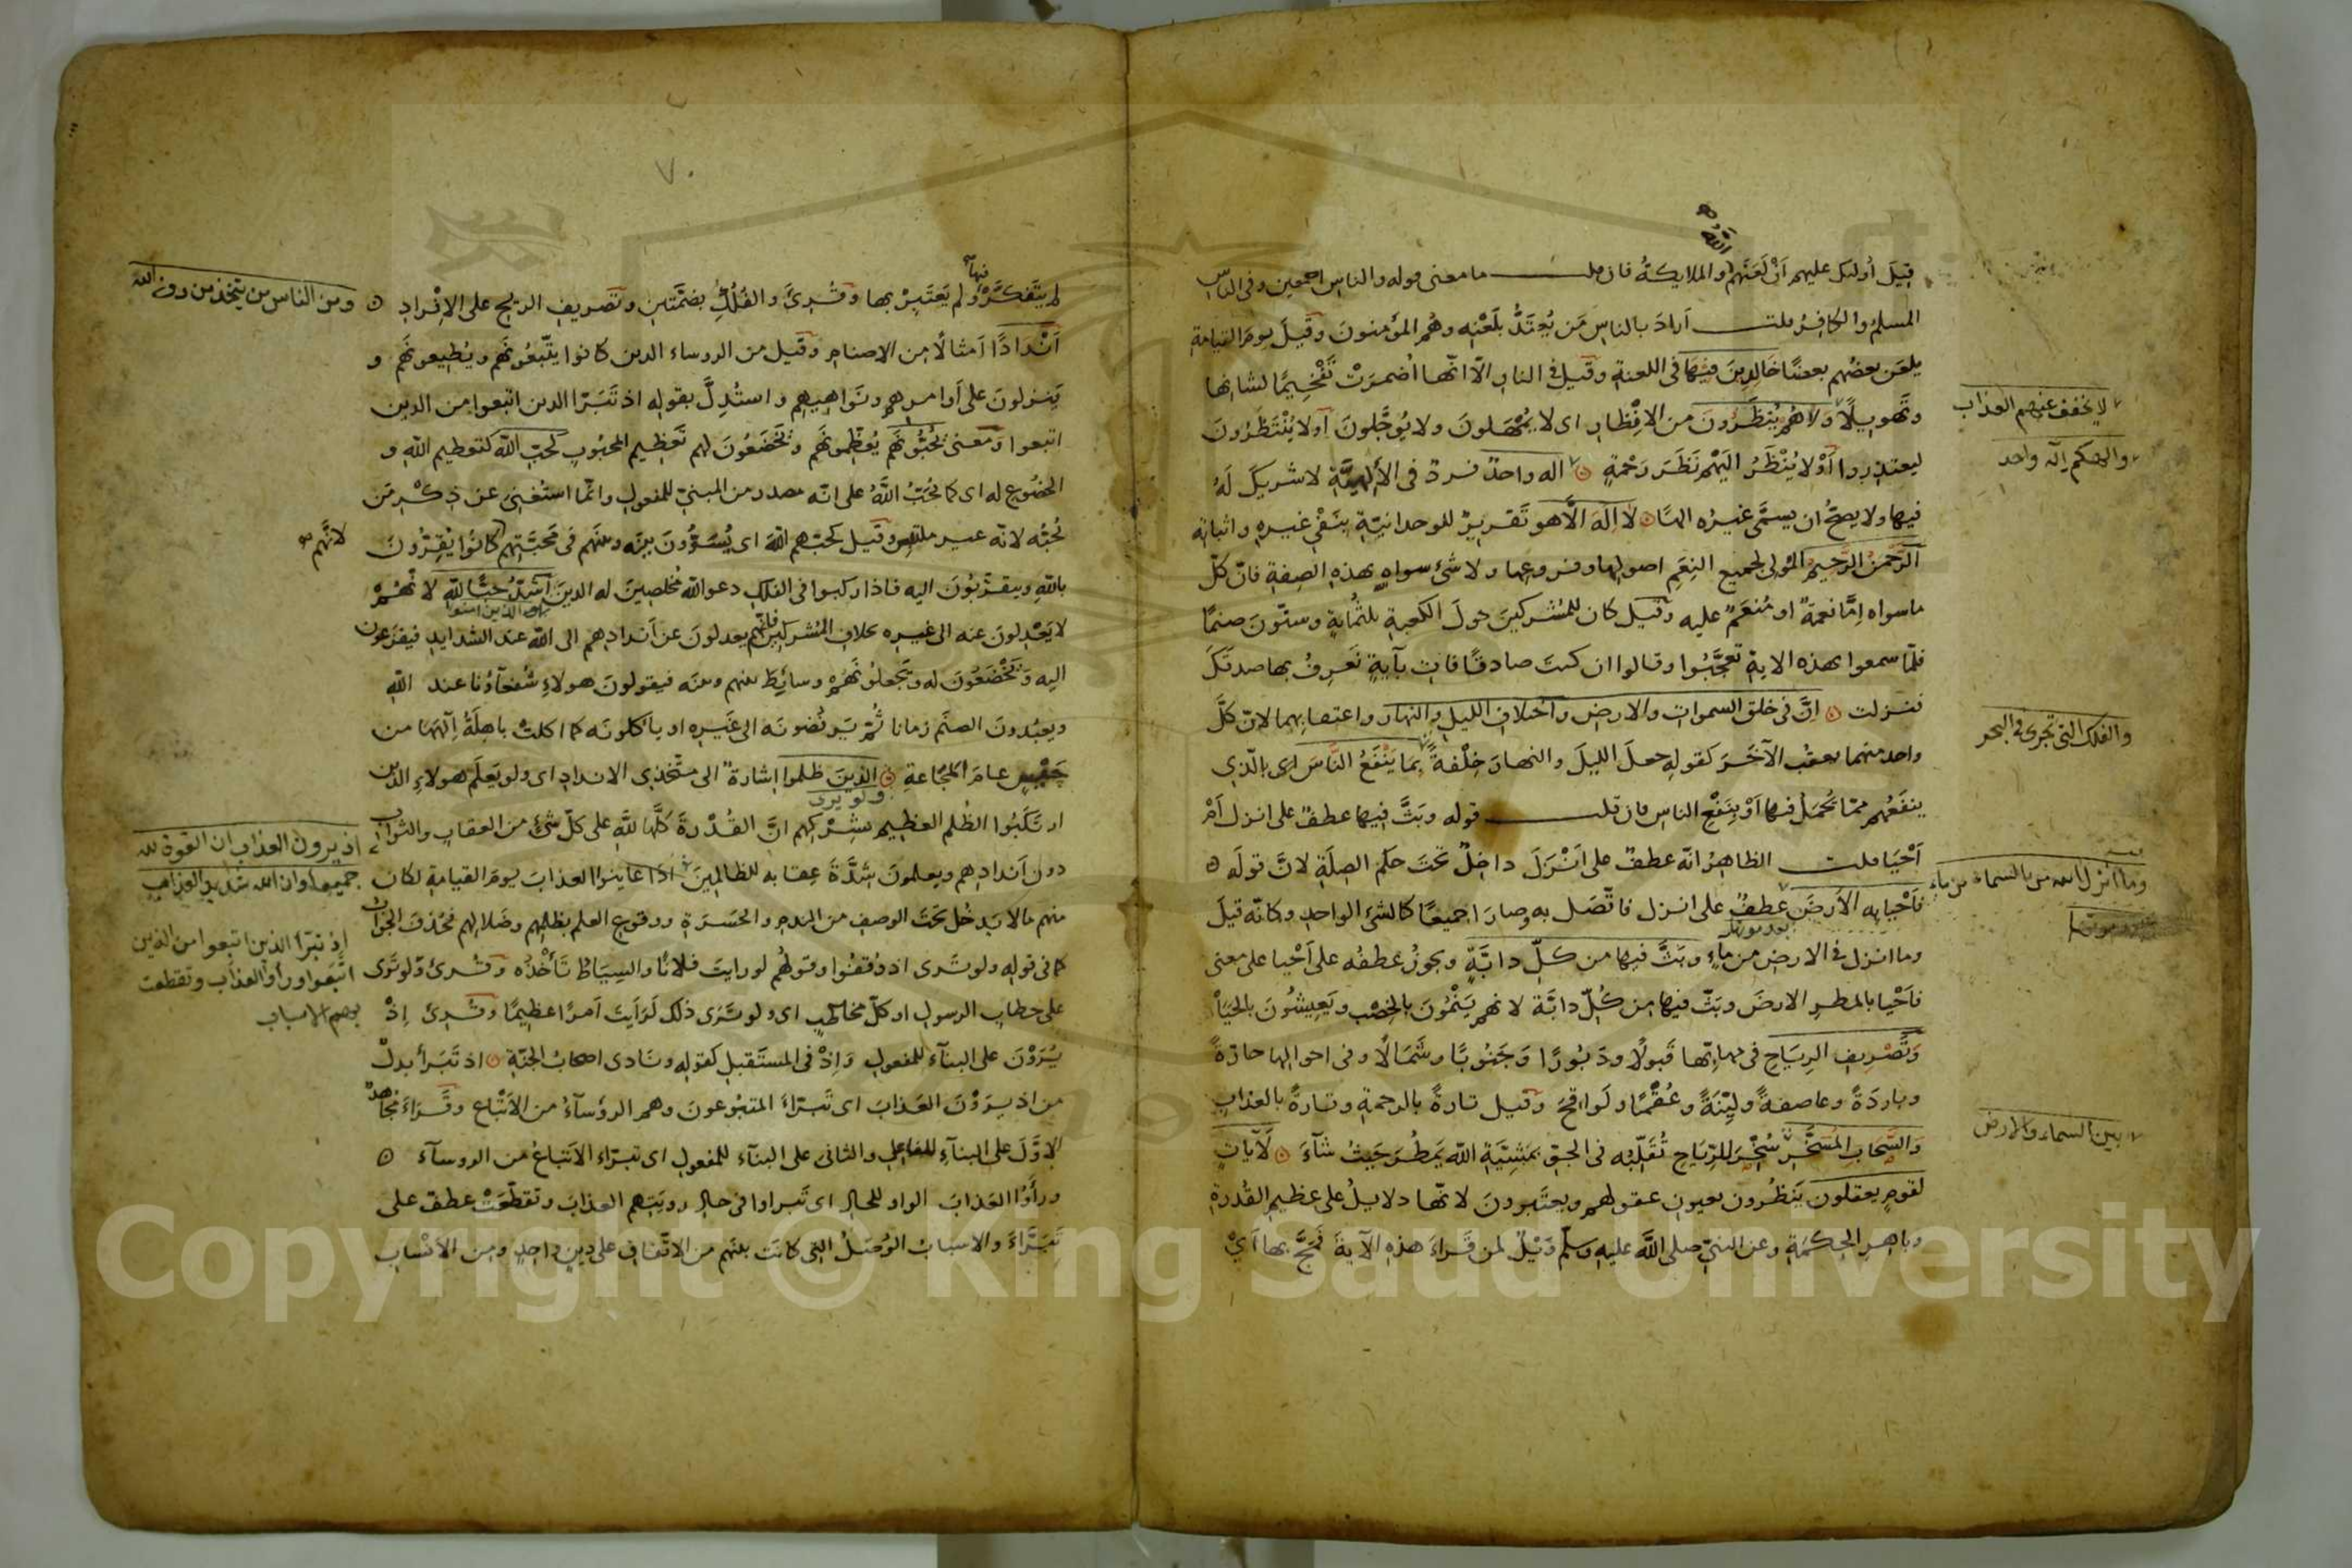 قيل أولئك عليهم أن لعنهم الله والملايكة فان قلت ما معنى قوله والناس اجمعين وفى الناس
المسلم والكافر قلت اراد بالناس من يُعتدّ بلَعْنِه وهُم المؤمنون وقيل يوم القيامة
يلعن بعضُهم بعضًا خالدين فيها فى اللعنة وقيل فى النار الّا انّها أُضمرَتْ تفخيمًا لشانها
وتهويلًا ولا هم يُنظَرُون من الانظار اى لا يُمْهَلون ولا يُوَجَّلون أو لا يُنْتَظَرُونَ
لا يخفف عنهم العذاب
ليعتذروا أوْ لا يُنْظَرُ اليهم نَظَرَ رَحْمةٍ اله واحد فردٌ فى الألهيَّةِ لا شريكَ لَهُ
والهكم إله واحد
فيها ولا يصحُّ ان يسمَّى غيرُه الهًا لا إلَهَ الّا هو تقريرٌ للوحدانيّة بنَفْىِ غيرهِ واثباته
الرَّحمنُ الرَّحيم المُولى لجميع النِعَمِ اصولِها وفروعِها ولا شئ سواهِ بهذه الصِفةِ فانّ كلّ
ما سواه إمَّا نعمةٌ او مُنعَمٌ عليه وقيل كان للمُشركينَ حولَ الكعبةِ ثلثُمايةٍ وستّون صنمًا
فلمّا سمعوا بهذه الاية تعجَّبُوا وقالوا ان كنتَ صادقًا فات بآيةٍ نَعرِفُ بها صدقَكَ
فنزلت إنَّ فى خلق السموات والارض واختلاف الليل والنهار واعتقابِهما لانّ كلَّ
واحد منهما يعقُب الآخَرَ كقوله جعلَ الليلَ والنهارَ خِلْفةً بما يَنْفَعُ النَّاسَ اى بالّذى
والفلك التى تجرى فى البحر
ينفَعُهم ممّا يُحمَلُ فيها أوْ بنَفْعِ الناس فان قلت قوله وبَثَّ فيها عطفٌ على انزل أَمْ
أَحْيَا قلت الظاهرُ انّه عطفٌ على أَنْزَلَ داخلٌ تحتَ حكم الصِلَةِ لانّ قولَه
وما أنزل الله من السماء من ماء
فأحْيا به الأرضَ عطفٌ على انزل فاتّصَل به وصارَا جميعًا كالشئ الواحدِ وكانّه قيلَ
بعد موتها
وما انزل فى الارض من ماءٍ وبَثَّ فيها من كلّ دابَّةٍ ويجوزُ عطفُه على أحْيا على معنى
فأحْيا بالمطرِ الارضَ وبَثّ فيها من كُلّ دابَّة لانهم يَنْمُونَ بالخِصْب ويَعِيشُونَ بالحَيَاْ
وتَصْريفِ الرِيَاح فى مهابّها قَبولًا ودَبُورًا وجَنُوبًا وشَمَالًا وفى احوالها حارّةً
وباردَةً وعاصفةً وليِّنَةً وعُقْمًا ولَواقحَ وقيل تارةً بالرحمةِ وتارةً بالعذاب
والسَّحابِ المُسَخَّرِ سُخّرَ للرّيَاحِ تُقَلّبُه فى الجوّ بمَشِيَّةِ اللّه يَمطُر حَيثُ شآءَ لَآياتٍ
بين السماء والارض
لقومٍ يعقلون يَنظُرون بعيون عقولهم ويعتَبرونَ لانّها دلايلُ على عظيم القُدرةِ
وباهرِ الحِكمَةِ وعن النبىّ صلى اللّه عليه وسلّم ويْلٌ لمن قَرَاءَ هذه الآيةَ فَمَجَّ بها أىْ
٧٠
لم يتَفكّرْ فيها ولم يَعتَبِرْ بها وقُرِئَ والفُلُكِ بضمَّتين وتصريف الريح على الإفراد
ومن الناس من يتخذ من دون الله
أنْدادًا أمثالًا من الاصنامِ وقيل من الروساء الذين كانوا يتّبعُونَهُم ويُطيعونَهُم و
يَنزلونَ على أوامرهم ونَواهِيهم واستُدِلَّ بقوله اذ تَبَرّا الذين اتبعوا من الذين
اتبعوا ومعنى يُحبُّونَهُم يُعظّمونَهُم ويَخضَعُونَ لهم تعظيم المحبُوبِ كحبّ اللّه كتعظيم اللّه و
الخضُوع له اى كما يُحَبُّ اللّهُ على انّه مصدر من المبنىّ للمفعول وانّما استُغنِىَ عن ذِكْرِ مَن
يُحبُّه لانّه غير ملتبس وقيل كحبّهم اللّه اى يُسَوُّونَ بينَه وبينَهم فى مَحَبّتِهم لانّهم كانُوا يُقِرُّونَ
باللّه ويتقرّبُونَ اليه فاذا ركبوا فى الفلك دعوا اللّه مُخلصينَ له الدينَ أشدُّ حبًّا للّه لانّهُمْ
والذين امنوا
لا يَعْدِلونَ عنه الى غيره بخلاف المُشركينَ فانّهم يعدلونَ عن أندادهم الى اللّه عند الشدايد فيفزعون
اليه ويَخْضَعُونَ له ويَجعلُونَهُم وسائِطَ بينهم وبينَه فيقولونَ هولاءِ شُفعآؤنا عند اللّه
ويعبُدونَ الصنَم زمانا ثُمّ يَرفُضونَه الى غَيره او ياكلونَه كما اكلتْ باهِلَةُ إلَهَهَا من
حَيْسٍ عامَ المجَاعةِ الذينَ ظلموا إشارةٌ الى متّخذى الاندادِ اى ولو يَعلَم هولاءِ الذين
ولو يرى
ارتكَبُوا الظُلم العظيم بشِرْكِهم انّ القُدْرةَ كلَّها للّهِ على كلّ شئ من العقابِ والثواب
اذ يرون العذاب ان القوة لله
دون أندادِهم ويعلمونَ شِدَّةَ عِقابه للظالِمينَ اذَا عاينوا العذابَ يومَ القيامةِ لكان
جميعا وان الله شديد العذاب
منهم مالا يَدخُل تحتَ الوصفِ من الندمِ والحَسرَةِ ووقوعِ العلمِ بظلمِهم وضَلالِهم فحُذف الجوَابُ
اذ تبرا الذين اتبعوا من الذين
كما فى قوله ولو تَرى اذ وُقفُوا وقولُهم لو رايتَ فلانًا والسِيَاطُ تَأْخُذُه وقُرئَ ولو تَرى
اتبعوا وراوا العذاب وتقطعت
على خطابِ الرسول او كلّ مخاطَبٍ اى ولو تَرَى ذلك لَرَايتَ أمرًا عظيمًا وقُرئَ اِذْ
بهم الاسباب
يُرَوْنَ على البنآءِ للمفعول وَاِذْ فى المستَقبلِ كقوله ونَادى اصحابُ الجَنّةِ اذ تَبَرأ بدلٌ
من اذ يرَوْنَ العَذابَ اى تَبرّاءَ المتبُوعونَ وهم الرؤسآءُ من الأتْباع وقَراءَ مُجاهدٌ
الاوّلَ على البنآءِ للفاعل والثانى على البنآء للمفعول اى تبرّاء الأتباعُ من الروسآء
ورأَوُا العَذابَ الواو للحال اى تَبراوا فى حالِ رويتهم العذابَ وتقطّعَتْ عطفٌ على
تَبَرّاءَ والاسبَابُ الوُصَلُ التى كانَت بينَهم من الاتّفاقِ على دينٍ واحِدٍ ومن الأنْسابِ
Copyright © King Saud University